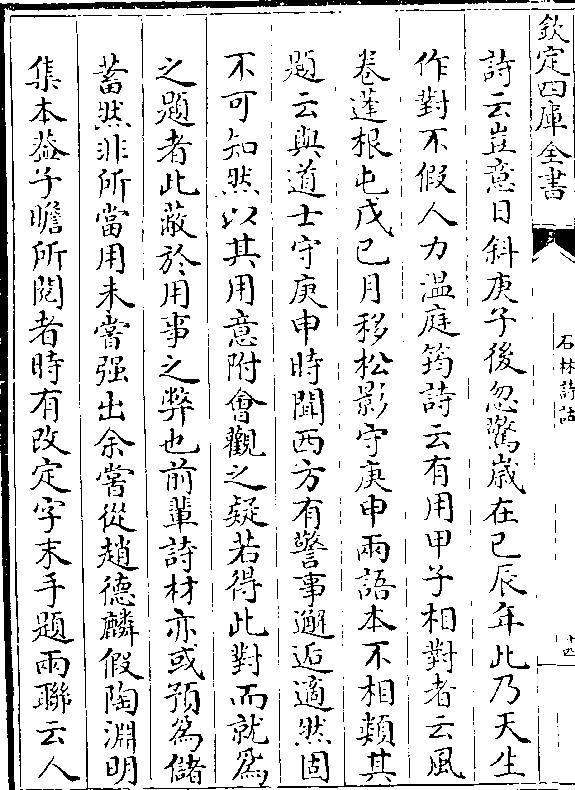 欽定四庫全書
石林詩話
十四
詩云豈意日斜庚子後忽驚歳在已辰年此乃天生
作對不假人力温庭筠詩云有用甲子相對者云風
卷蓬根屯戊已月移松影守庚申兩語本不相類其
題云與道士守庚申時聞西方有警事邂逅適然固
不可知然以其用意附會觀之疑若得此對而就為
之題者此蔽於用事之弊也前軰詩材亦或預為儲
蓄然非所當用未嘗强出余嘗從趙德麟假陶淵明
集本葢子瞻所閲者時有改定字末手題兩聯云人